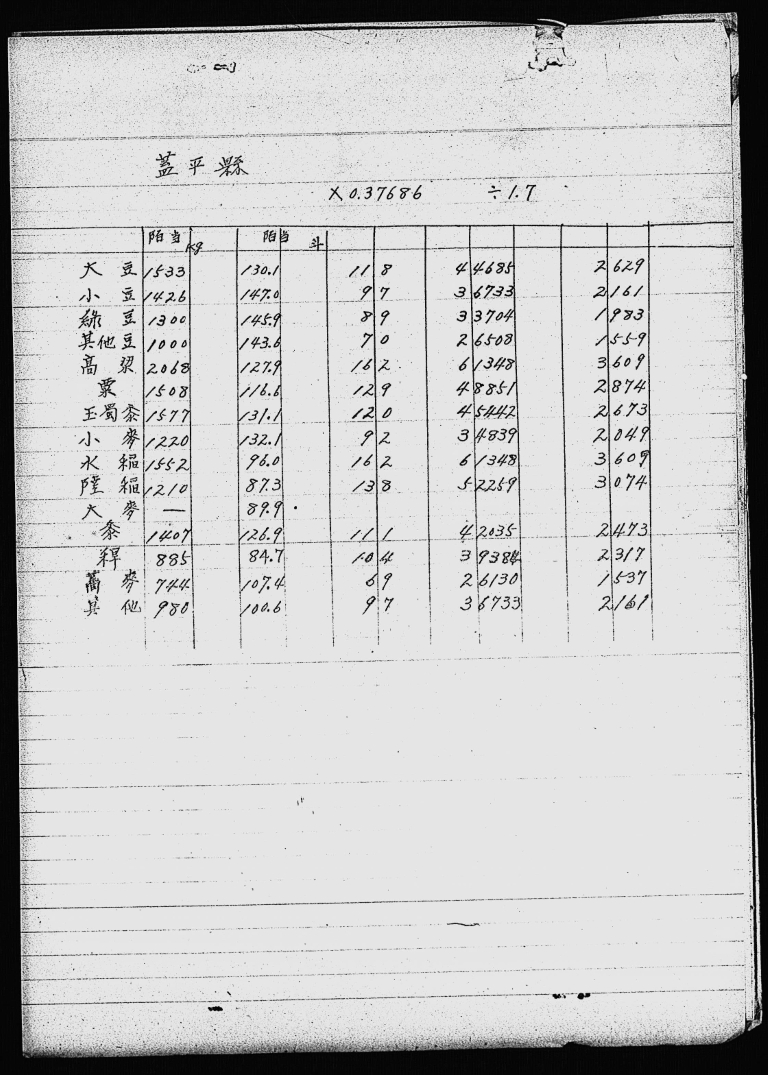 蓋平縣
×0.37686 ÷1.7
陌当kg 陌当斗
大豆 1533 130.1 11 8 4 4685 2 629
小豆 1426 147.0 9 7 3 6733 2 161
綠豆 1300 145.9 8 9 3 3704 1 983
其他豆 1000 143.6 7 0 2 6508 1 559
高粱 2068 127.9 16 2 6 1348 3 609
粟 1508 116.6 12 9 4 8851 2 874
玉蜀黍 1577 131.1 12 0 4 5442 2 673
小麥 1220 132.1 9 2 3 4839 2 049
水稲 1552 96.0 16 2 6 1348 3 609
陸稲 1210 87.3 13 8 5 2259 3 074
大麥 — 89.9
黍 1407 126.9 11 1 4 2035 2 473
稗 885 84.7 10 4 3 9384 2 317
蕎麥 744 107.4 6 9 2 6130 1 537
其他 980 100.6 9 7 3 6733 2 161